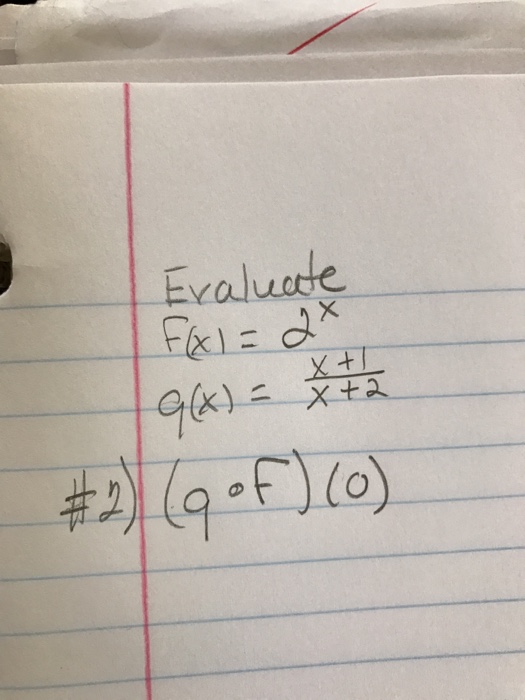 Evaluate
F(x) = 2^x
g(x) = (x+1)/(x+2)
#2) (g∘F)(0)